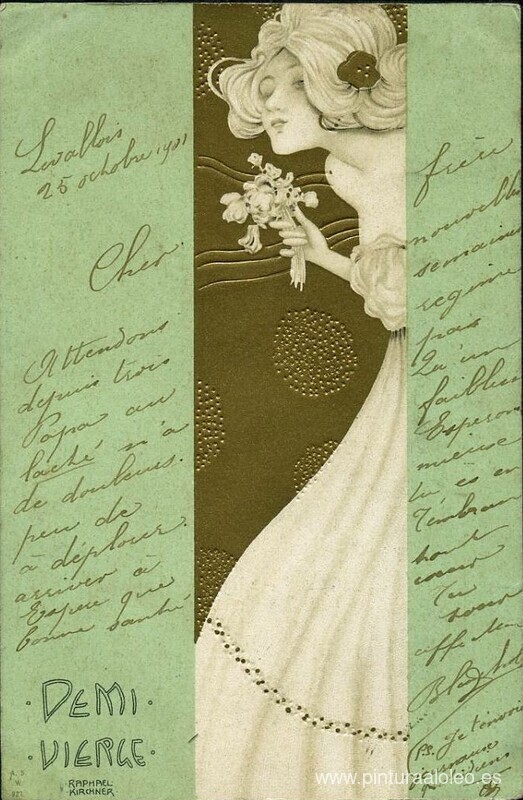 Levallois
25 octobre 1901
Cher
frère
Attendons
depuis trois
Papa au
lâché n'a
de douleurs.
peu de
à déplorer.
arriver à
Espère que
bonne santé
nouvelles
semaines
régime
pas
Qu'un
faiblem
Esperons
mieux
tu es en
T'embrass
tout
coeur
Ta
soeur
affect
PS. Je t'envoie
DEMI
VIERGE
RAPHAEL
KIRCHNER
www.pinturaaloleo.es